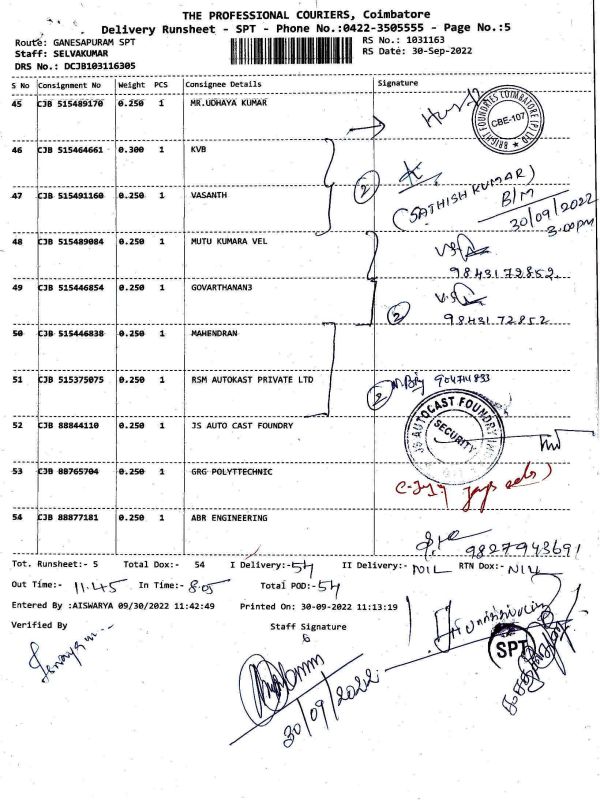 THE PROFESSIONAL COURIERS, Coimbatore
Delivery Runsheet - SPT - Phone No.:0422-3505555 - Page No.:5
Route: GANESAPURAM SPT
RS No.: 1031163
Staff: SELVAKUMAR
RS Date: 30-Sep-2022
DRS No.: DCJB103116305
S No Consignment No Weight PCS Consignee Details Signature
45 CJB 515489170 0.250 1 MR.UDHAYA KUMAR
BRIGHT FOUNDRIES COIMBATORE (P) LTD
CBE-107
46 CJB 515464661 0.300 1 KVB
2
(SATHISH KUMAR)
B/M
47 CJB 515491160 0.250 1 VASANTH
30/09/2022
3.00pm
48 CJB 515489084 0.250 1 MUTU KUMARA VEL
9843172852
49 CJB 515446854 0.250 1 GOVARTHANAN3
2
9843172852
50 CJB 515446838 0.250 1 MAHENDRAN
51 CJB 515375075 0.250 1 RSM AUTOKAST PRIVATE LTD
2
52 CJB 88844110 0.250 1 JS AUTO CAST FOUNDRY
JS AUTOCAST FOUNDRY
SECURITY
53 CJB 88765704 0.250 1 GRG POLYTTECHNIC
54 CJB 88877181 0.250 1 ABR ENGINEERING
9827943691
Tot. Runsheet:- 5 Total Dox:- 54 I Delivery:-54 II Delivery:- NIL RTN Dox:- NIL
Out Time:- 11.45 In Time:- 8.05 Total POD:-54
Entered By :AISWARYA 09/30/2022 11:42:49 Printed On: 30-09-2022 11:13:19
Verified By Staff Signature
6
SPT
30/09/2022